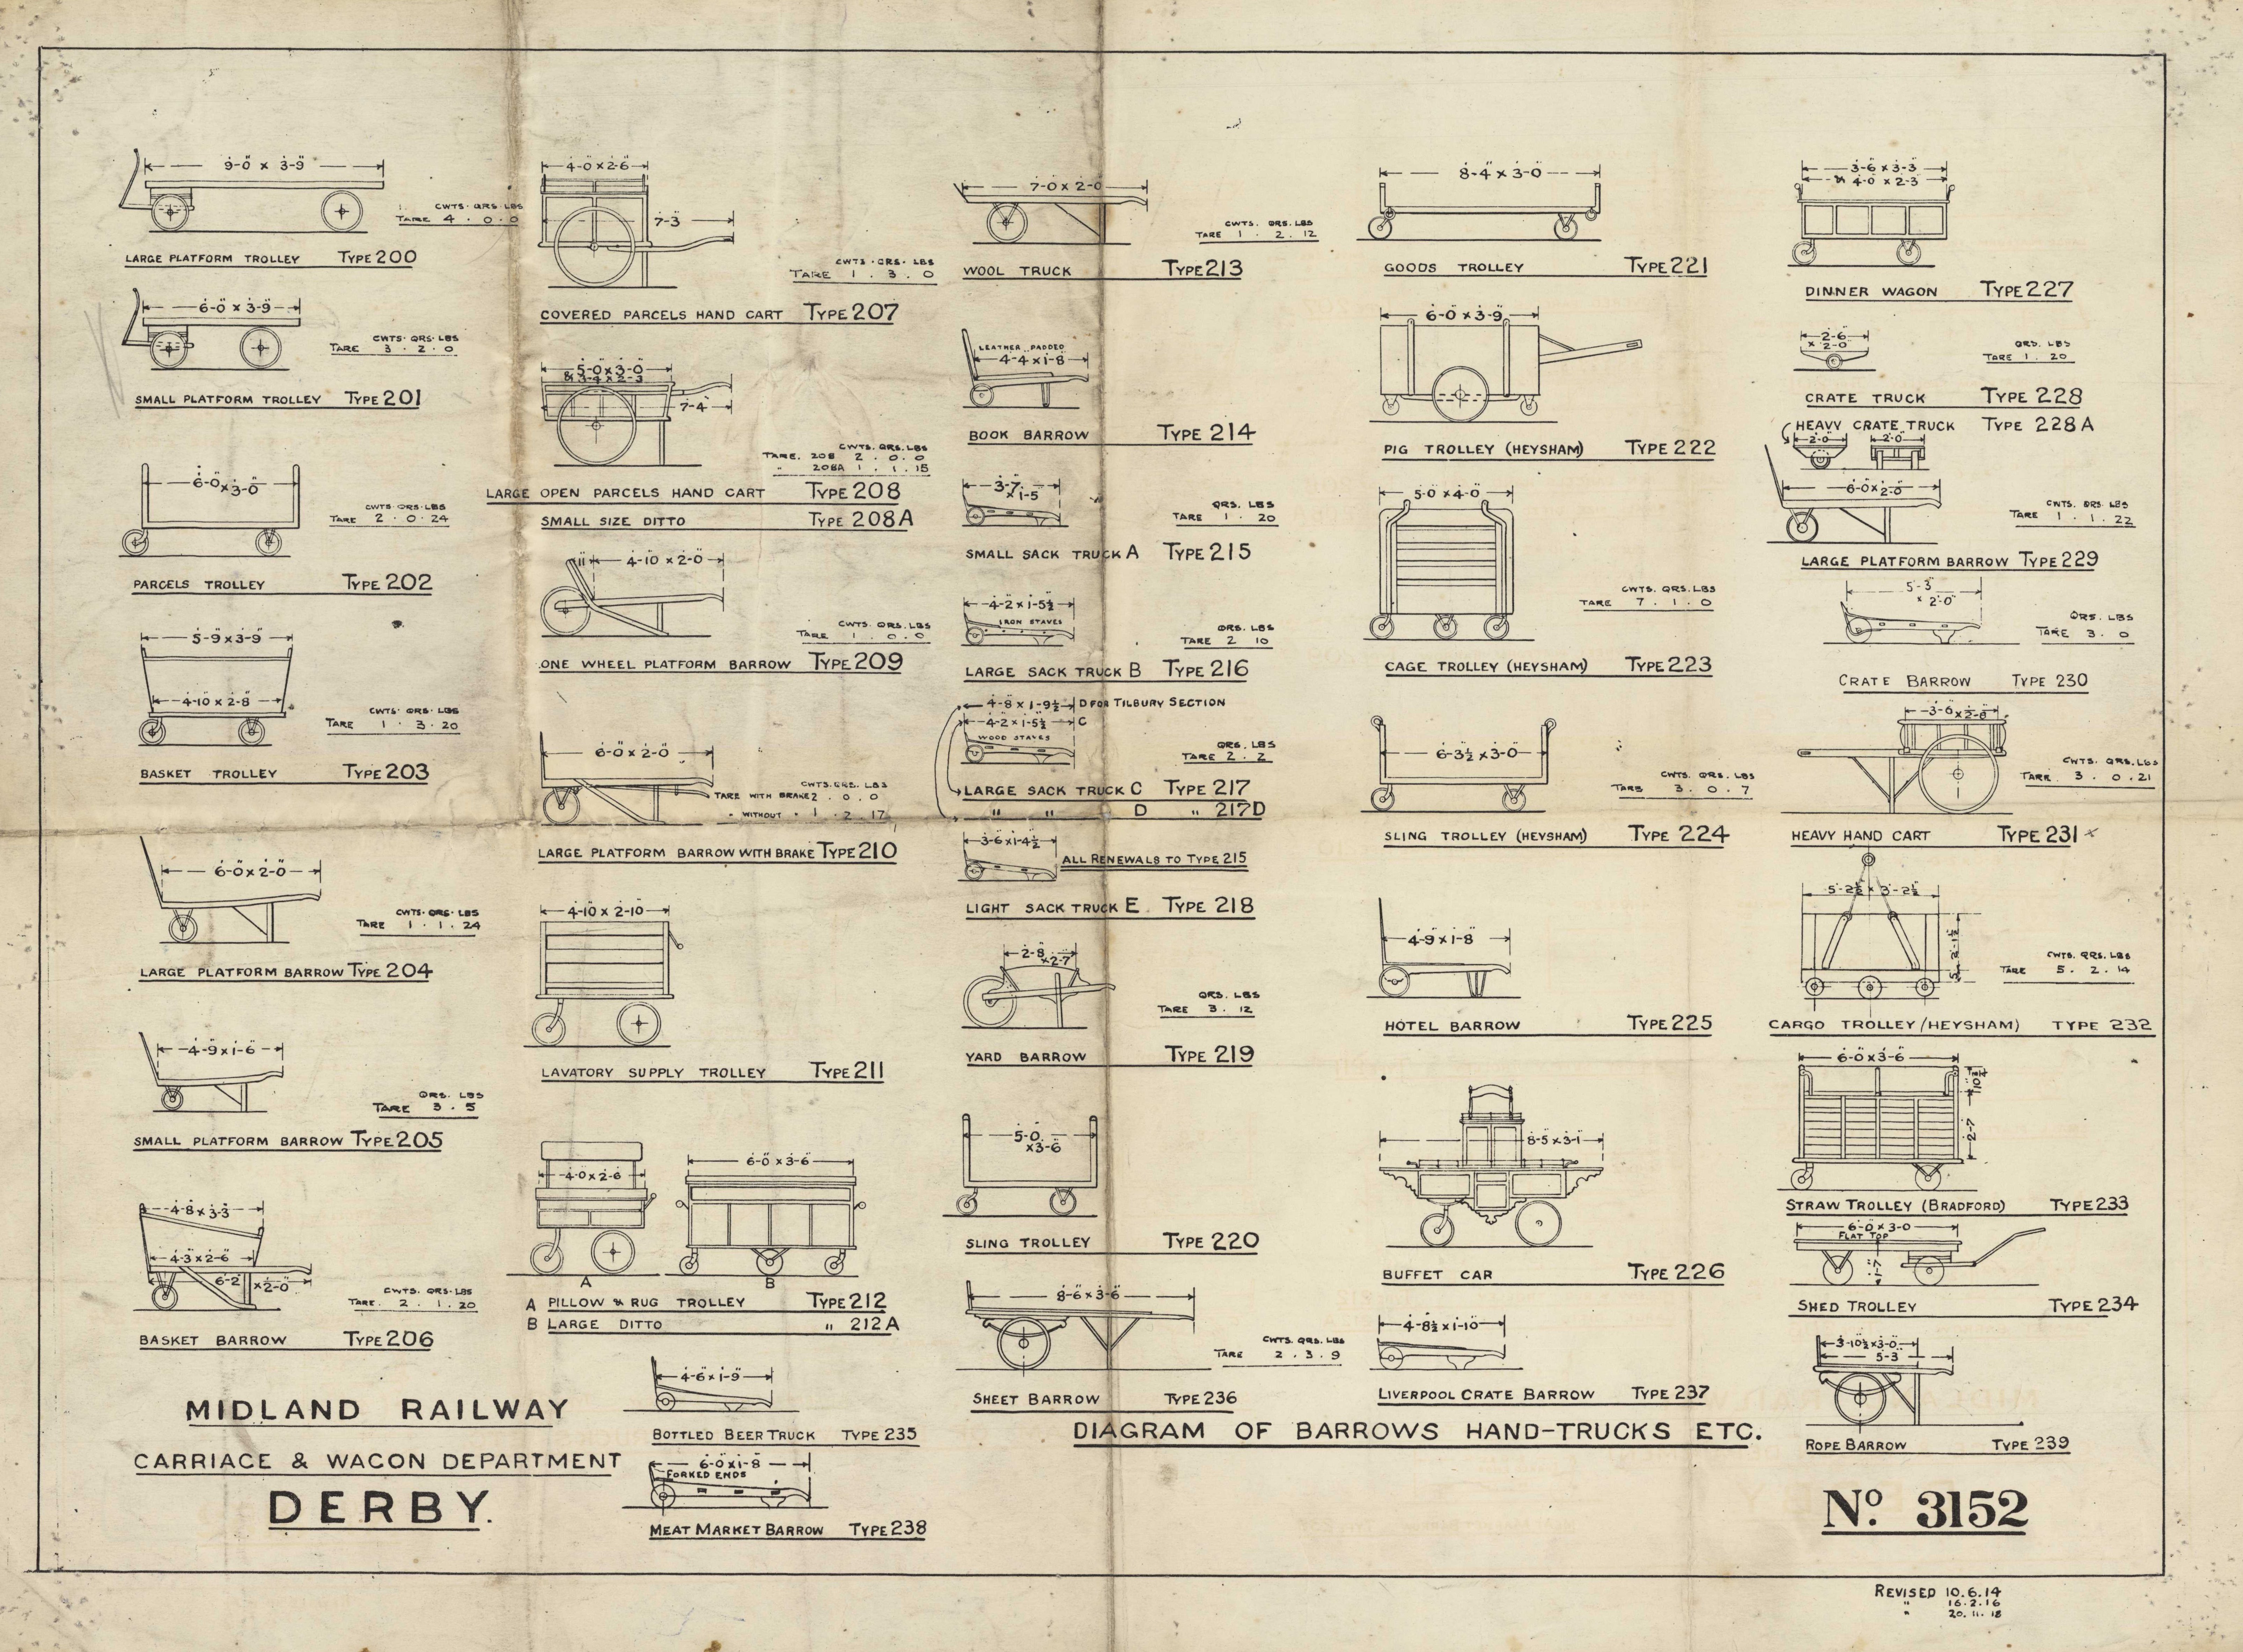 9-0 x 3-9
CWTS. QRS. LBS
TARE 4 . 0 . 0
LARGE PLATFORM TROLLEY TYPE 200
6-0 x 3-9
CWTS. QRS. LBS
TARE 3 . 2 . 0
SMALL PLATFORM TROLLEY TYPE 201
6-0 x 3-0
CWTS. QRS. LBS
TARE 2 . 0 . 24
PARCELS TROLLEY TYPE 202
5-9 x 3-9
4-10 x 2-8
CWTS. QRS. LBS
TARE 1 . 3 . 20
BASKET TROLLEY TYPE 203
6-0 x 2-0
CWTS. QRS. LBS
TARE 1 . 1 . 24
LARGE PLATFORM BARROW TYPE 204
4-9 x 1-6
QRS. LBS
TARE 3 . 5
SMALL PLATFORM BARROW TYPE 205
4-8 x 3-3
4-3 x 2-6
6-2 x 2-0
CWTS. QRS. LBS
TARE. 2 . 1 . 20
BASKET BARROW TYPE 206
MIDLAND RAILWAY
CARRIAGE & WAGON DEPARTMENT
DERBY.
4-0 x 2-6
7-3
CWTS. QRS. LBS
TARE 1 . 3 . 0
COVERED PARCELS HAND CART TYPE 207
5-0 x 3-0
& 3-4 x 2-3
7-4
CWTS. QRS. LBS
TARE. 208 2 . 0 . 0
" 208A 1 . 1 . 15
LARGE OPEN PARCELS HAND CART TYPE 208
SMALL SIZE DITTO TYPE 208A
11 4-10 x 2-0
CWTS. QRS. LBS
TARE 1 . 0 . 0
ONE WHEEL PLATFORM BARROW TYPE 209
6-0 x 2-0
CWTS. QRS. LBS
TARE WITH BRAKE 2 . 0 . 0
" WITHOUT " 1 . 2 . 17
LARGE PLATFORM BARROW WITH BRAKE TYPE 210
4-10 x 2-10
LAVATORY SUPPLY TROLLEY TYPE 211
4-0 x 2-6
6-0 x 3-6
A B
A PILLOW & RUG TROLLEY TYPE 212
B LARGE DITTO " 212A
4-6 x 1-9
BOTTLED BEER TRUCK TYPE 235
6-0 x 1-8
FORKED ENDS
MEAT MARKET BARROW TYPE 238
7-0 x 2-0
CWTS. QRS. LBS
TARE 1 . 2 . 12
WOOL TRUCK TYPE 213
LEATHER PADDED
4-4 x 1-8
BOOK BARROW TYPE 214
3-7 x 1-5
QRS. LBS
TARE 1 . 20
SMALL SACK TRUCK A TYPE 215
4-2 x 1-5½
IRON STAVES
QRS. LBS
TARE 2 10
LARGE SACK TRUCK B TYPE 216
4-8 x 1-9½ D FOR TILBURY SECTION
4-2 x 1-5½ C
WOOD STAVES
QRS. LBS
TARE 2 . 2
LARGE SACK TRUCK C TYPE 217
" " D " 217D
3-6 x 1-4½
ALL RENEWALS TO TYPE 215
LIGHT SACK TRUCK E. TYPE 218
2-8 x 2-7
QRS. LBS
TARE 3. 12
YARD BARROW TYPE 219
5-0 x 3-6
SLING TROLLEY TYPE 220
8-6 x 3-6
CWTS. QRS. LBS
TARE 2 . 3 . 9
SHEET BARROW TYPE 236
8-4 x 3-0
GOODS TROLLEY TYPE 221
6-0 x 3-9
PIG TROLLEY (HEYSHAM) TYPE 222
5-0 x 4-0
CWTS. QRS. LBS
TARE 7 . 1 . 0
CAGE TROLLEY (HEYSHAM) TYPE 223
6-3½ x 3-0
CWTS. QRS. LBS
TARE 3 . 0 . 7
SLING TROLLEY (HEYSHAM) TYPE 224
4-9 x 1-8
HOTEL BARROW TYPE 225
8-5 x 3-1
BUFFET CAR TYPE 226
4-8½ x 1-10
LIVERPOOL CRATE BARROW TYPE 237
DIAGRAM OF BARROWS HAND-TRUCKS ETC.
3-6 x 3-3
& 4-0 x 2-3
DINNER WAGON TYPE 227
2-6
x 2-0
QRS. LBS
TARE 1 . 20
CRATE TRUCK TYPE 228
HEAVY CRATE TRUCK TYPE 228A
2-0 2-0
6-0 x 2-0
CWTS. QRS. LBS
TARE 1 . 1 . 22
LARGE PLATFORM BARROW TYPE 229
5-3
x 2-0
QRS. LBS
TARE 3. 0
CRATE BARROW TYPE 230
3-6 x 2-6
CWTS. QRS. LBS
TARE. 3 . 0 . 21
HEAVY HAND CART TYPE 231
5-2½ x 3-2½
CWTS. QRS. LBS
TARE 5. 2. 14
CARGO TROLLEY (HEYSHAM) TYPE 232
6-0 x 3-6
2-7
STRAW TROLLEY (BRADFORD) TYPE 233
6-0 x 3-0
FLAT TOP
SHED TROLLEY TYPE 234
3-10½ x 3-0
5-3
ROPE BARROW TYPE 239
No. 3152
REVISED 10.6.14
" 16.2.16
" 20.11.18